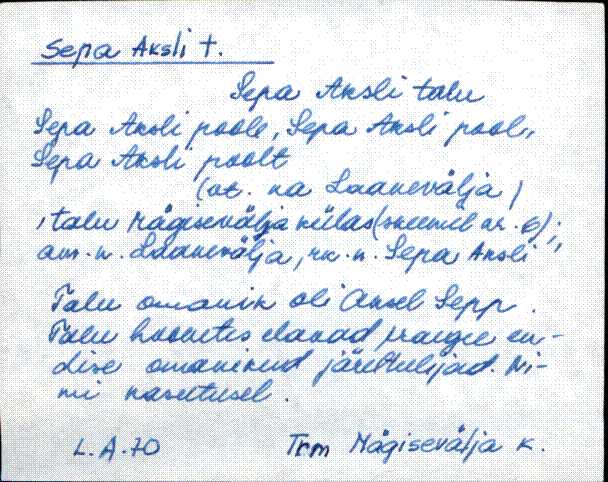 Sepa Aksli t.
Sepa Aksli talu
Sepa Aksli poole, Sepa Aksli pool,
Sepa Aksli poolt
(vt. ka Laanevälja)
, talu Mägisevälja külas (skeemil nr. 6);
am. n. Laanevälja, rk. n. Sepa Aksli"
Talu omanik oli Aksel Sepp.
Talu hoonetes elavad praegu en-
dise omanikud järeltulijad. Ni-
mi kasutusel.
L.A. 70 Trm Mägisevälja k.